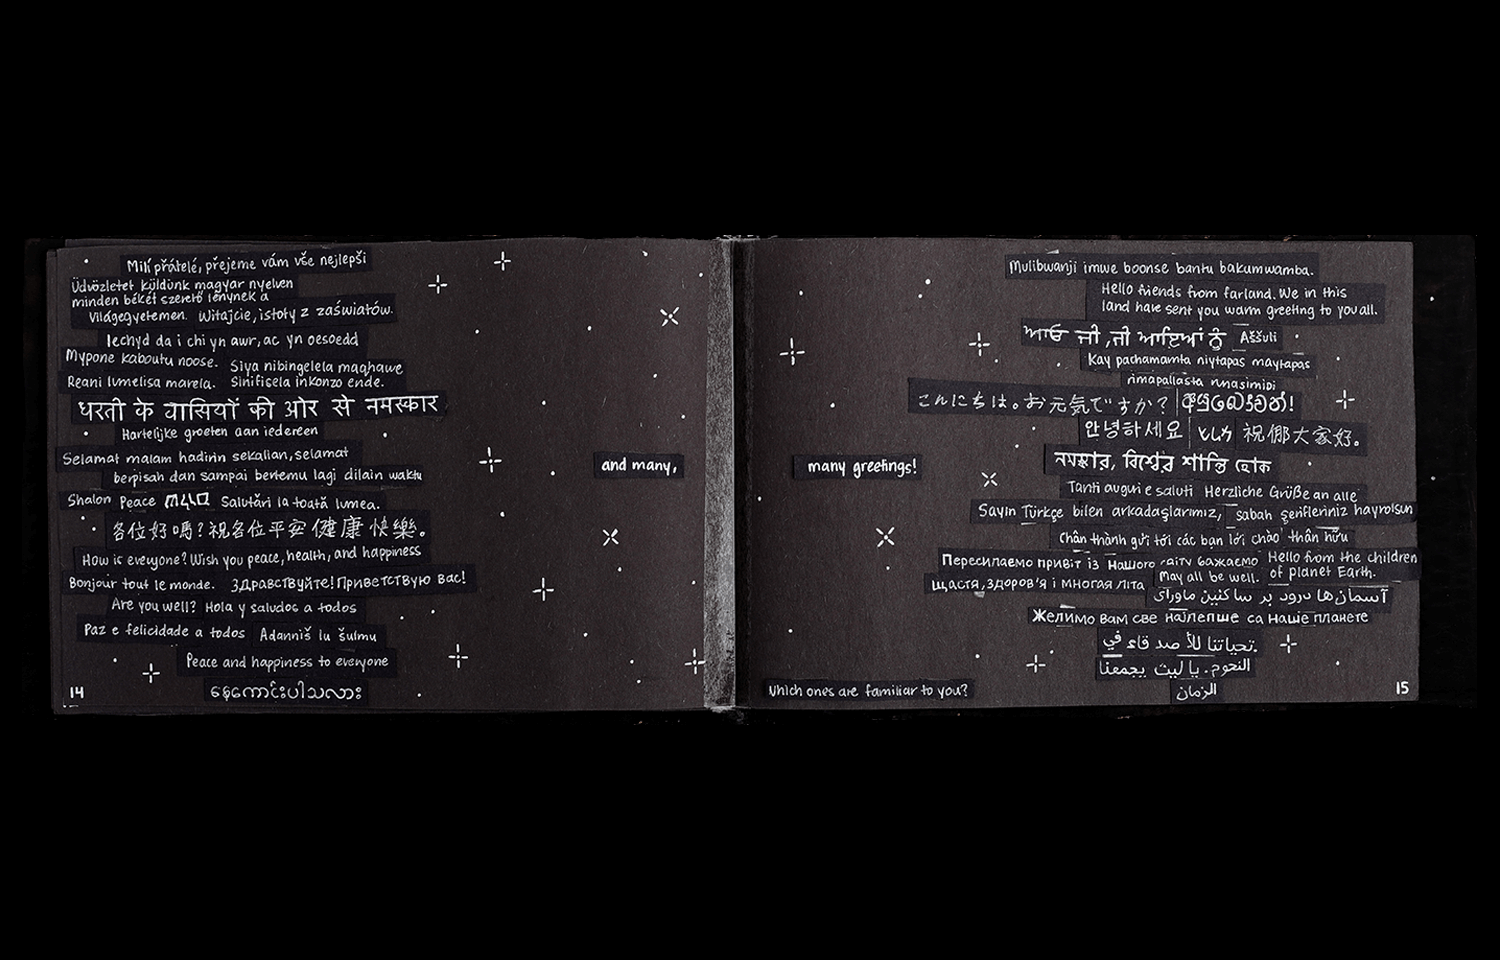 Milí přátelé, přejeme vám vše nejlepší
Üdvözletet küldünk magyar nyelven
minden békét szerető lénynek a
Világegyetemen. Witajcie, istoty z zaświatów.
Iechyd da i chi yn awr, ac yn oesoedd
Mypone kaboutu noose. Siya nibingelela maqhawe
Reani lumelisa marela. Sinifisela inkonzo ende.
धरती के वासियों की ओर से नमस्कार
Hartelijke groeten aan iedereen
Selamat malam hadirin sekalian, selamat
berpisah dan sampai bertemu lagi dilain waktu
Shalon Peace Salutări la toată lumea.
各位好嗎?祝各位平安健康快樂。
How is everyone? Wish you peace, health, and happiness
Bonjour tout le monde. Здравствуйте! Приветствую вас!
Are you well? Hola y saludos a todos
Paz e felicidade a todos Adanniš lu šulmu
Peace and happiness to everyone
နေကောင်းပါသလား
14
and many,
many greetings!
Mulibwanji imwe boonse bantu bakumwamba.
Hello friends from farland. We in this
land have sent you warm greeting to you all.
ਆਓ ਜੀ, ਜੀ ਆਇਆਂ ਨੂੰ Aššuli
Kay pachamanta niytapas maytapas
rimapallasta runasimipi
こんにちは。お元気ですか? ආයුබෝවන්!
안녕하세요 祝㑚大家好。
নমস্কার, বিশ্বের শান্তি হোক
Tanti auguri e saluti Herzliche Grüße an alle
Sayin Türkçe bilen arkadaşlarımız, sabah şerifleriniz hayrolsun
Chân thành gửi tới các bạn lời chào thân hữu
Пересилаємо привіт із нашого світу бажаємо Hello from the children
щастя, здоров'я і многая літа May all be well. of planet Earth.
آسمان‌ها درود بر ساکنین ماورای
Желимо вам све најлепше са наше планете
تحياتنا للأصدقاء في
النجوم. يا ليت يجمعنا
الزمان
Which ones are familiar to you?
15